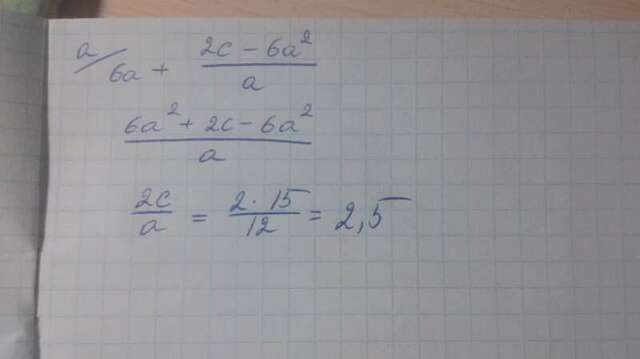 a/ 6a + (2c - 6a²)/a
(6a² + 2c - 6a²)/a
2c/a = (2 · 15)/12 = 2,5